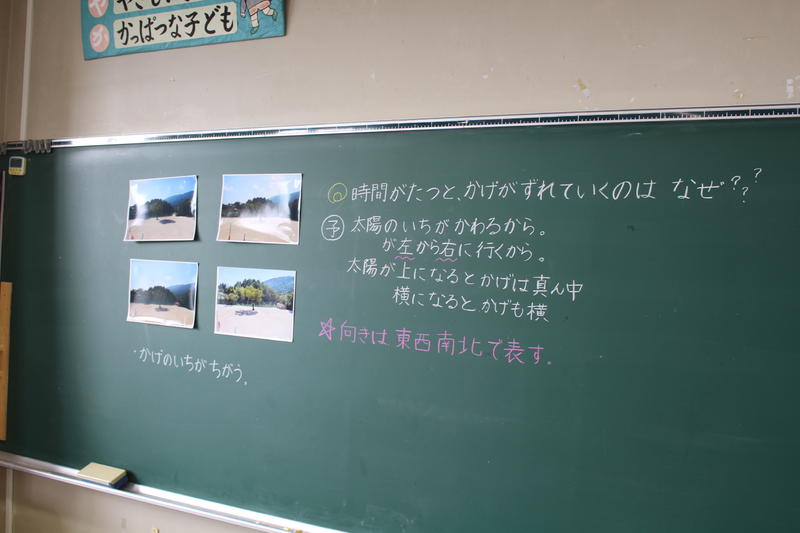 かっぱつな子ども
時間がたつと、かげがずれていくのは なぜ???
予 太陽のいちがかわるから。
が左から右に行くから。
太陽が上になるとかげは真ん中
横になるとかげも横
☆向きは東西南北で表す。
・かげのいちがちがう。